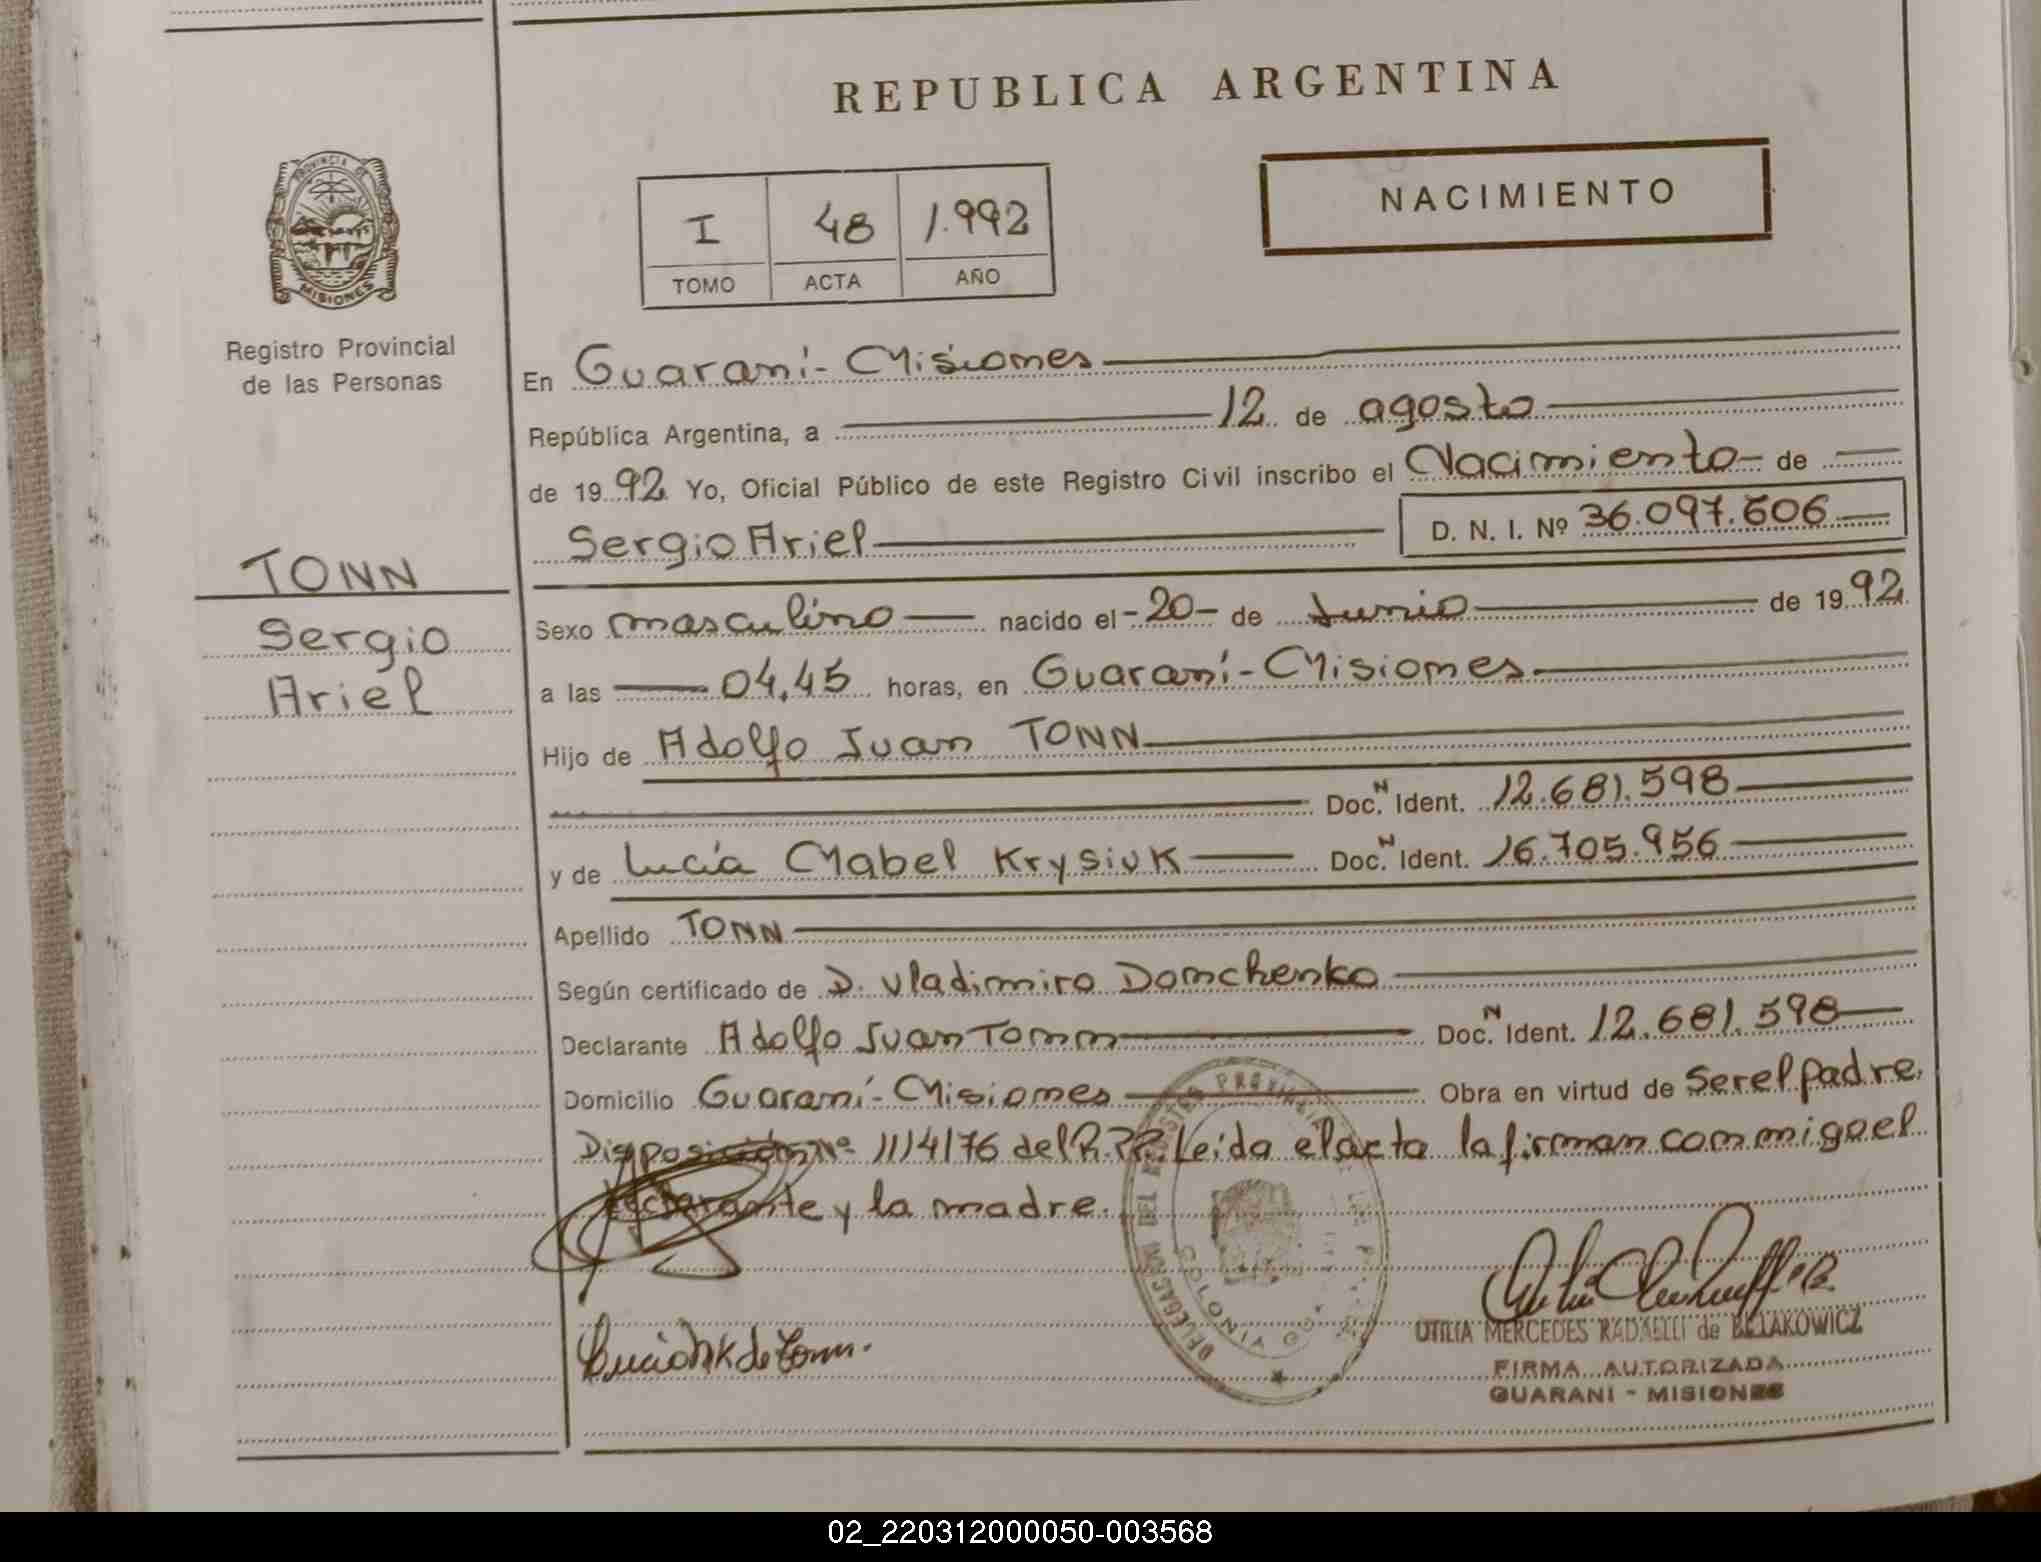 REPUBLICA ARGENTINA
PROVINCIA DE
MISIONES
Registro Provincial
de las Personas
I 48 1.992
TOMO ACTA AÑO
NACIMIENTO
En Guaraní - Misiones
República Argentina, a 12 de agosto
de 1992 Yo, Oficial Público de este Registro Civil inscribo el Nacimiento de
Sergio Ariel D. N. I. Nº 36.097.606
TONN
Sergio
Ariel
Sexo masculino nacido el -20- de Junio de 1992
a las 04,45 horas, en Guaraní - Misiones
Hijo de Adolfo Juan TONN
Doc. N Ident. 12.681.598
y de Lucía Mabel Krysiuk Doc. N Ident. 16.705.956
Apellido TONN
Según certificado de D. Vladimiro Domchenko
Declarante Adolfo Juan Tonn Doc. N Ident. 12.681.598
Domicilio Guaraní - Misiones Obra en virtud de Ser el padre.
Disposición Nº 1114/76 del R.P.P. Leída el acta la firman conmigo el
declarante y la madre.
COLONIA
Lucia M K de Tonn.
UTILIA MERCEDES RADAELLI de BIELAKOWICZ
FIRMA AUTORIZADA
GUARANI - MISIONES
02_220312000050-003568